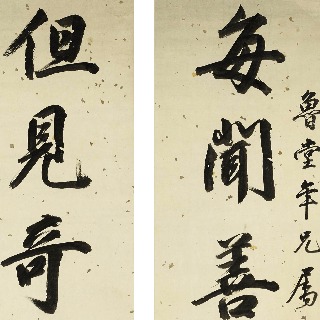 魯堂年兄属
每聞善
但見奇